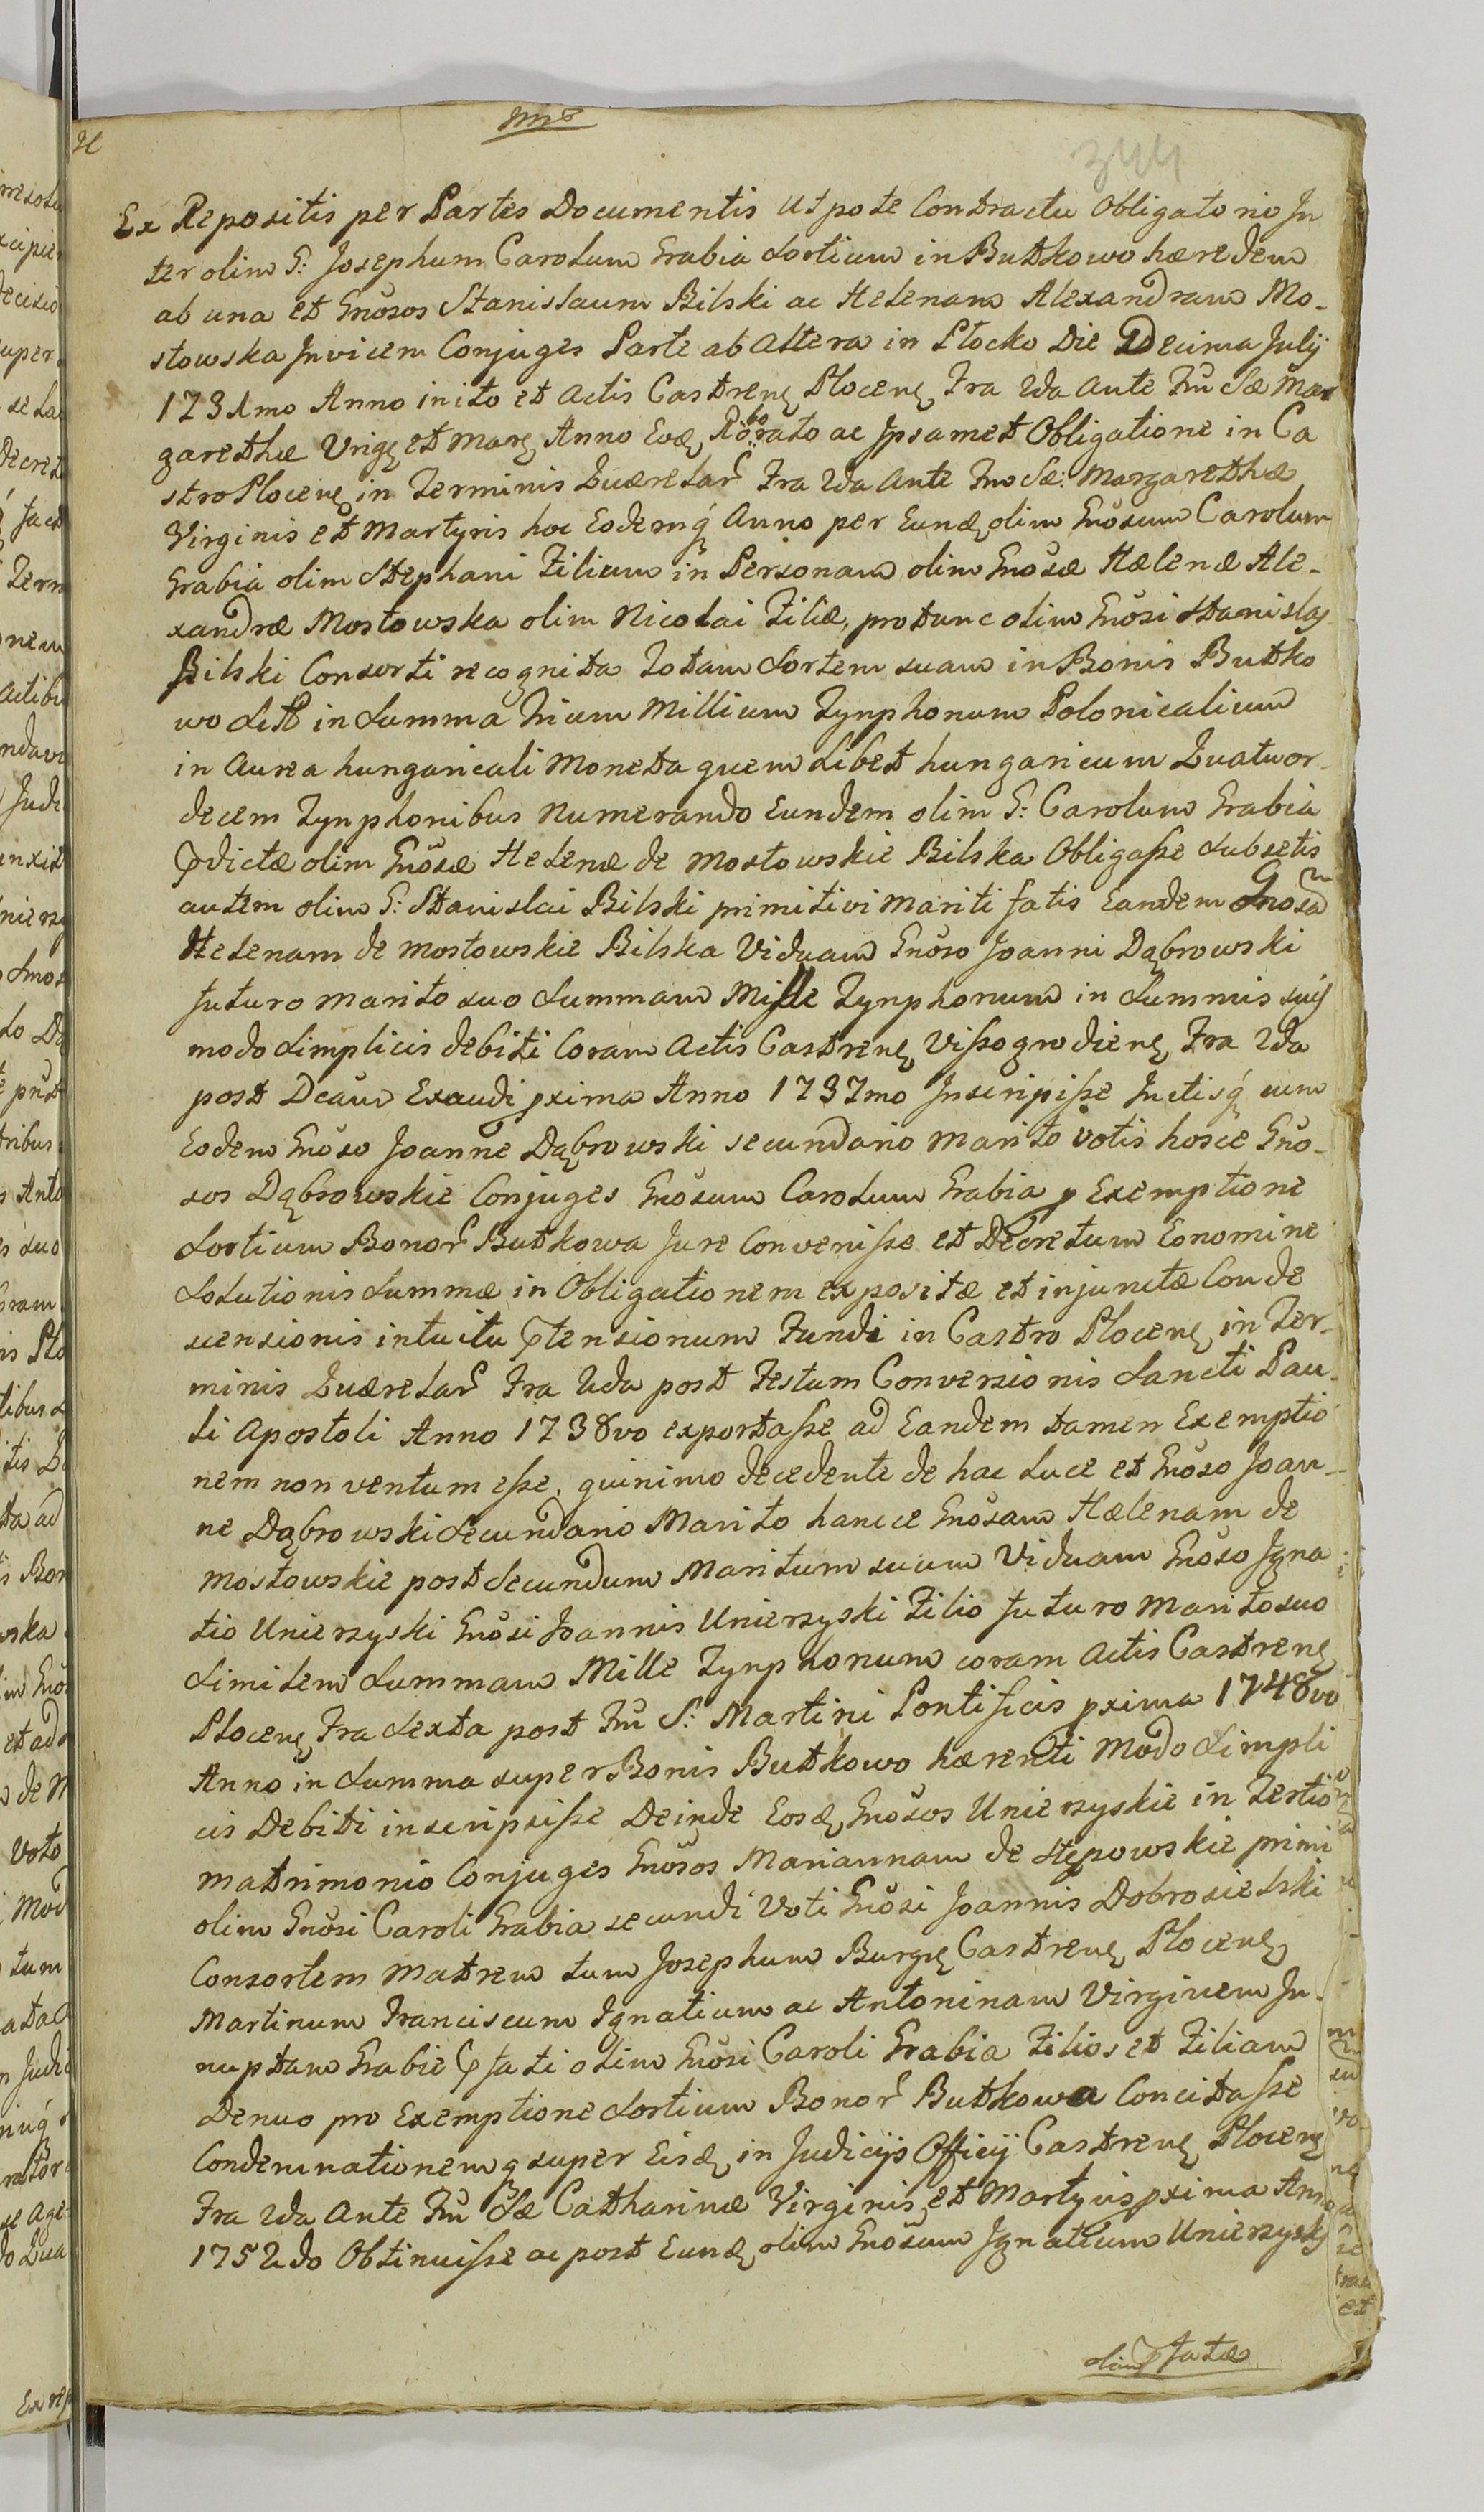 344
Ex Repositis per Partes Documentis utpote Contractu Obligatorio In
ter olim G: Josephum Carolum Grabia Sortium in Butkowo hæredem
ab una et Gnosos Stanislaum Bilski ac Helenam Alexandram Mo-
stowska Invicem Conjuges Parte ab altera in Plocko Die Decima July
1731mo Anno inito et Actis Castren Plocen Fra 2da Ante Fm Sæ Mar
garethæ Virgi et Mar Anno Eod Roborato ac Ipsamet Obligatione in Ca
stro Plocen in Terminis Quærelar Fra 2da Ante Fmo Sæ: Margarethæ
Virginis et Martyris hoc Eodemq Anno per Eund olim Gnosum Carolum
Grabia olim Stephani Filium in Personam olim Gnosæ Hælenæ Ale-
xandræ Mostowska olim Nicolai Filiæ, protunc olim Gnosi Stanislai
Bilski Consorti recognita Totam Sortem suam in Bonis Butko
wo Sitt in Summa Trium Millium Tynphonum Polonicalium
in Aurea hungaricali Moneta quem Libet hungaricum Quatuor-
decem Tynphonibus Numerando Eundem olim G: Carolum Grabia
Prdictæ olim Gnosæ Helenæ de Mostowskie Bilska Obligasse Subsetis
autem olim G: Stanislai Bilski primitivi Mariti fatis Eandem Gnosã
Helenam de Mostowskie Bilska Viduam Gnoso Joanni Dąbrowski
futuro Marito suo Summam Mille Tynphonum in Summis suis
modo Simplicis debiti Coram Actis Castren Vissogrodien Fra 2da
post Dcam Exaudi pxima Anno 1737mo Inscripisse Inctisq cum
Eodem Gnoso Joanne Dąbrowski secundario Marito votis hosce Gno-
sos Dąbrowskie Conjuges Gnosum Carolum Grabia p Exemptione
Sortium Bonor Butkowa Jure Convenisse et Decretum Eonomine
Solutionis Summæ in Obligationem expositæ et injunctæ Conde
scensionis intuitu Prtensionum Fundi in Castro Plocen in Ter-
minis Quærelar Fra 2da post Festum Conversionis Sancti Pau-
li Apostoli Anno 1738vo exportasse ad Eandem tamen Exemptio
nem non ventum esse, quinimo decedente de hac Luce et Gnoso Joan-
ne Dąbrowski Secundario Marito hancce Gnosam Hælenam de
Mostowskie post Secundum Maritum suum Viduam Gnoso Igna
tio Unierzyski Gnosi Joannis Unierzyski Filio futuro Marito suo
Similem Summam Mille Tynphonum coram Actis Castren
Plocen Fra Sexta post Fm S: Martini Pontificis pxima 1748vo
Anno in Summa super Bonis Butkowo hærenti Modo Simpli
cis Debiti inscripsisse Deinde Eosd Gnosos Unierzyskie in Tertio
matrimonio Conjuges Gnosos Mariannam de Stępowskie primi
olim Gnosi Caroli Grabia secundi Voti Gnosi Joannis Dobrosielski
Consortem Matrem tum Josephum Burgr Castren Plocen
Martinum Franciscum Ignatium ac Antoninam Virginem In-
nuptam Grabie Prfati olim Gnosi Caroli Grabia Filios et Filiam
Denuo pro Exemptione Sortium Bonor Butkowa Concitasse
Condemnationemq super Eisd in Judicijs Officij Castren Plocen
Fra 2da Ante Fm Sæ Catharinæ Virginis et Martyris pxima Anno
1752do Obtinuisse ac post Eund olim Gnosum Ignatium Unierzyski
olim Prfatæ